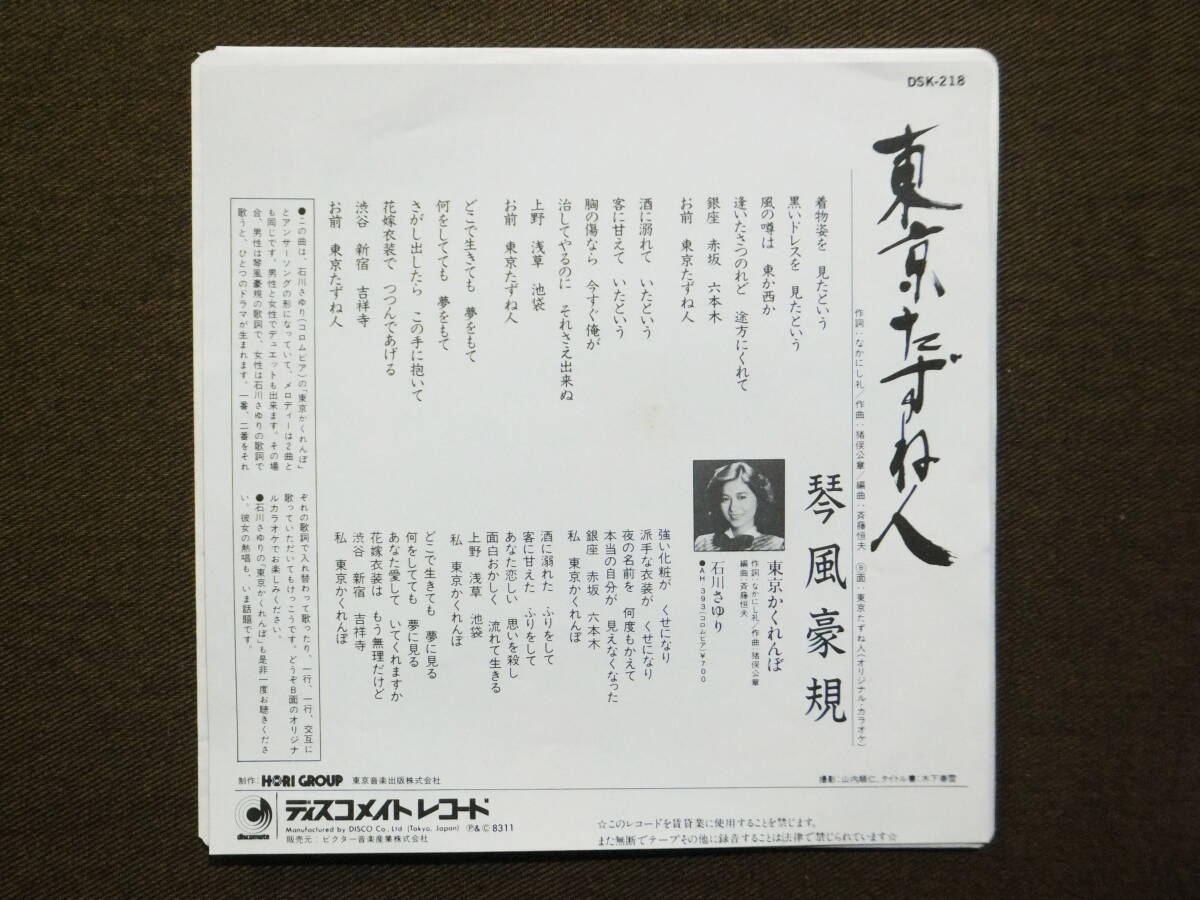 DSK-218
東京たずね人
作詞:なかにし礼/作曲:猪俣公章/編曲:斉藤恒夫 Ⓑ面:東京たずね人(オリジナル・カラオケ)
琴風豪規
着物姿を 見たという
黒いドレスを 見たという
風の噂は 東か西か
逢いたさつのれど 途方にくれて
銀座 赤坂 六本木
お前 東京たずね人
酒に溺れて いたという
客に甘えて いたという
胸の傷なら 今すぐ俺が
治してやるのに それさえ出来ぬ
上野 浅草 池袋
お前 東京たずね人
どこで生きても 夢をもて
何をしてても 夢をもて
さがし出したら この手に抱いて
花嫁衣装で つつんであげる
渋谷 新宿 吉祥寺
お前 東京たずね人
東京かくれんぼ
作詞:なかにし礼/作曲:猪俣公章
編曲:斉藤恒夫
石川さゆり
●AH-393(コロムビア)¥700
強い化粧が くせになり
派手な衣装が くせになり
夜の名前を 何度もかえて
本当の自分が 見えなくなった
銀座 赤坂 六本木
私 東京かくれんぼ
酒に溺れた ふりをして
客に甘えた ふりをして
あなた恋しい 思いを殺し
面白おかしく 流れて生きる
上野 浅草 池袋
私 東京かくれんぼ
どこで生きても 夢に見る
何をしてても 夢に見る
あなた愛して いてくれますか
花嫁衣装は もう無理だけど
渋谷 新宿 吉祥寺
私 東京かくれんぼ
●この曲は、石川さゆり(コロムビア)の「東京かくれんぼ」
とアンサーソングの形になっていて、メロディーは2曲と
も同じです。男性と女性でデュエットも出来ます。その場
合、男性は琴風豪規の歌詞で、女性は石川さゆりの歌詞で
歌うと、ひとつのドラマが生まれます。一番、二番をそれ
ぞれの歌詞で入れ替わって歌ったり、一行、一行、交互に
歌っていただいてもけっこうです。どうぞB面のオリジナ
ルカラオケでお楽しみください。
●石川さゆりの「東京かくれんぼ」も是非一度お聴きくださ
い。彼女の熱唱も、いま話題です。
撮影:山内順仁、タイトル書:木下春雪
制作:HORI GROUP 東京音楽出版株式会社
discomate
ディスコメイトレコード
Manufactured by DISCO Co., Ltd (Tokyo, Japan) Ⓟ&Ⓒ 8311
販売元:ビクター音楽産業株式会社
☆このレコードを賃貸業に使用することを禁じます。
また無断でテープその他に録音することは法律で禁じられています☆